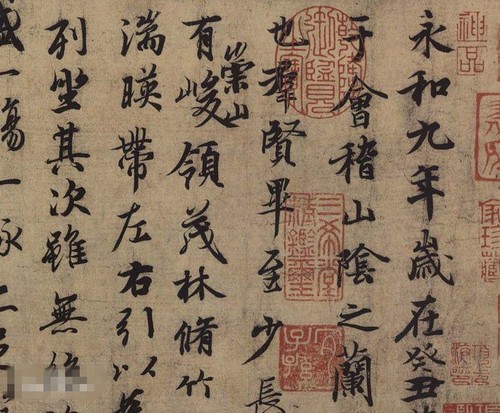 永和九年歲在癸丑
于會稽山陰之蘭
也羣賢畢至少長
有崇山峻領茂林脩竹
湍暎帶左右引以
列坐其次雖無
盛一觴一詠
神品
三希堂精鑑璽
宜子孫